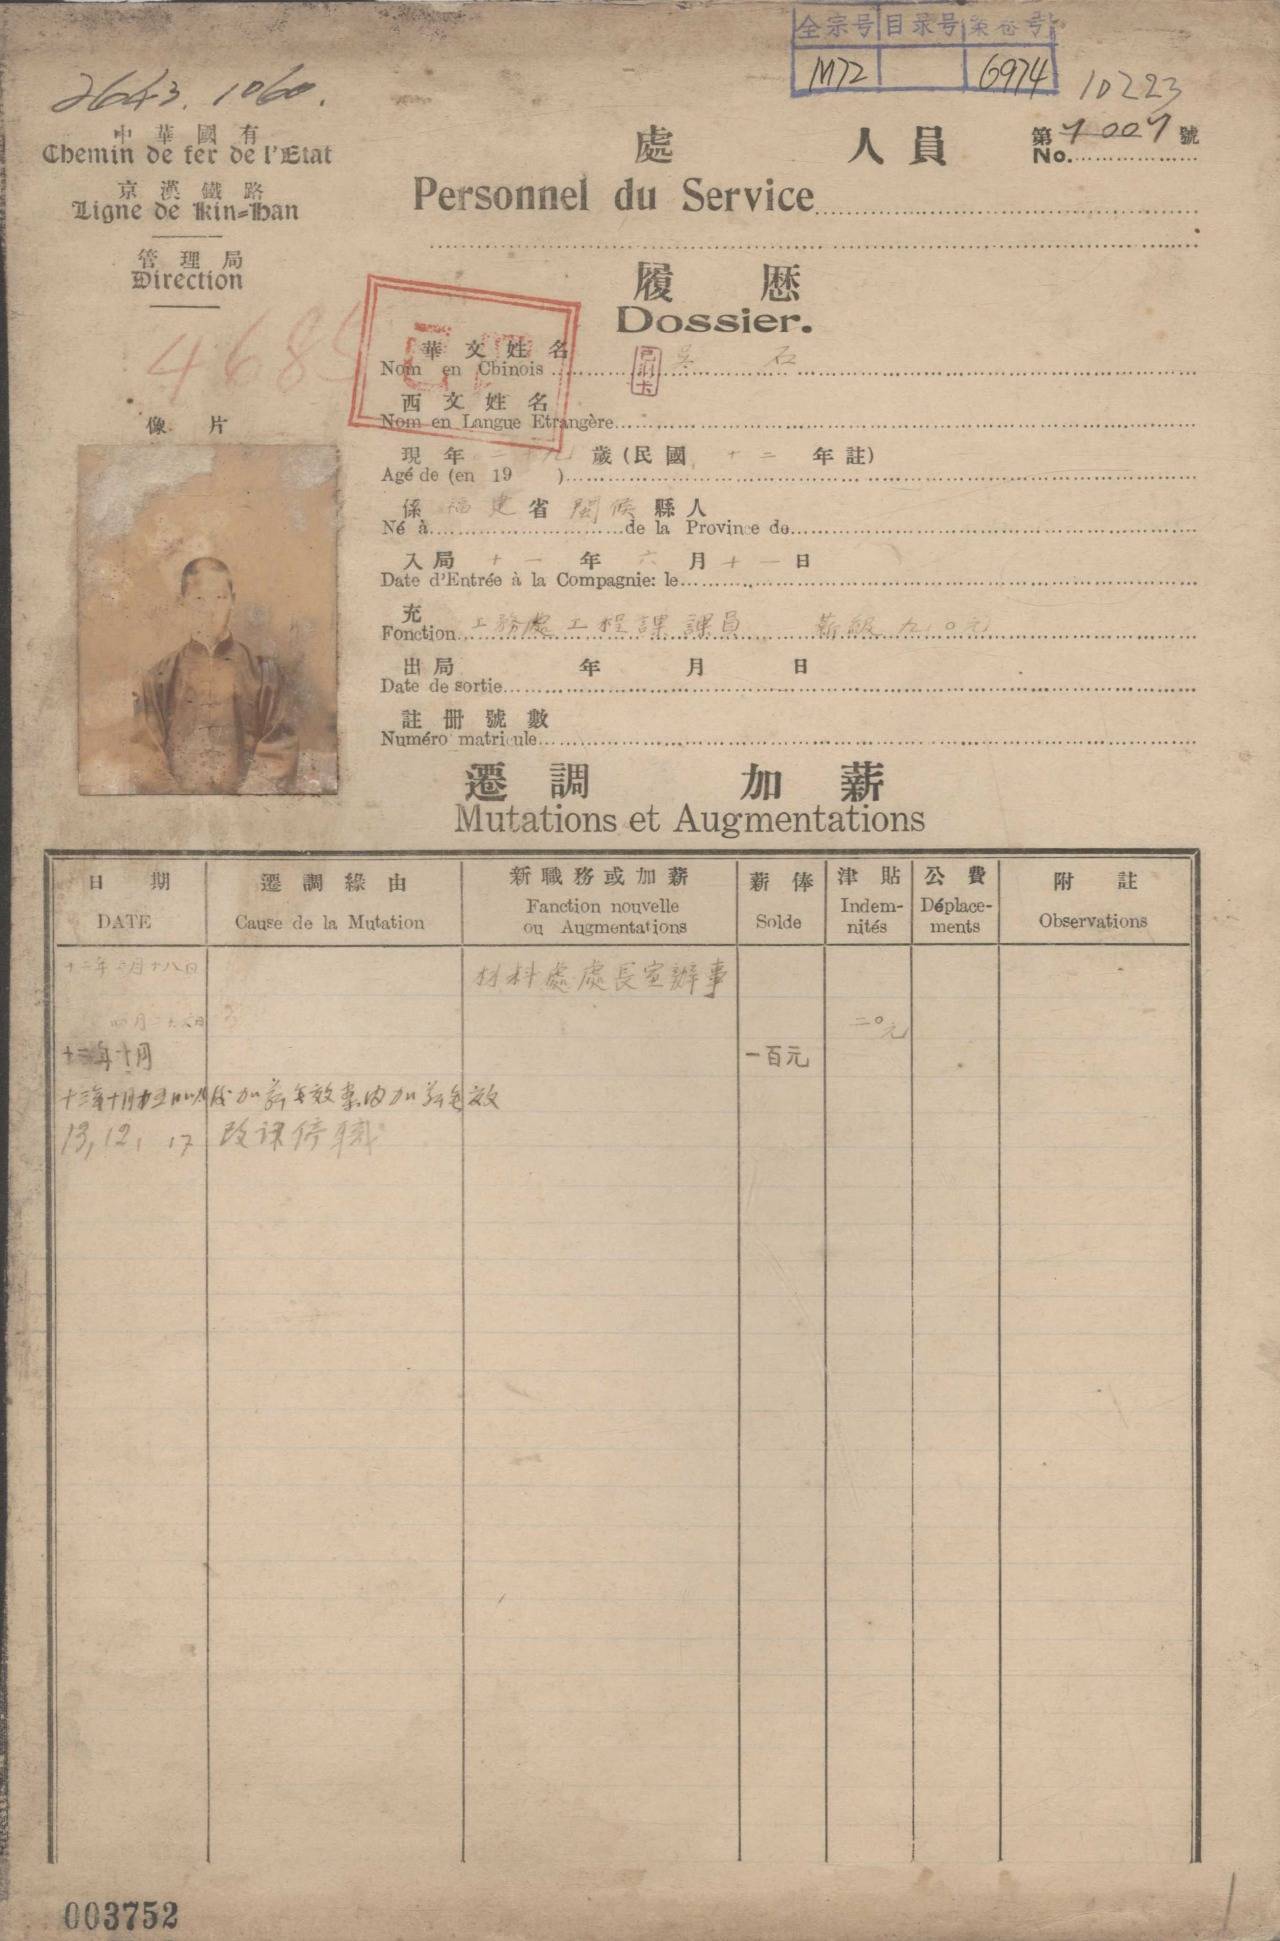 全宗号 目录号 案卷号
M72 6974
10223
2643.1060.
中華國有
Chemin de fer de l'Etat
京漢鐵路
Ligne de Kin=Han
管理局
Direction
處 人員
Personnel du Service
第 7007 號
No.
履歷
Dossier.
華文姓名 吳 石
Nom en Chinois
已制卡
西文姓名
Nom en Langue Etrangère
現年 二十九 歲(民國 十二 年註)
Agé de (en 19 )
係 福建 省 閩侯 縣人
Né à de la Province de
入局 十一 年 六 月 十一 日
Date d'Entrée à la Compagnie: le
充 工務處工程課課員 薪級九〇元
Fonction
出局 年 月 日
Date de sortie
註冊號數
Numéro matricule
468
像片
遷調 加薪
Mutations et Augmentations
日期 遷調緣由 新職務或加薪 薪俸 津貼 公費 附註
DATE Cause de la Mutation Fanction nouvelle ou Augmentations Solde Indem-nités Déplace-ments Observations
十二年 月十八日 材料處處長室辦事
四月二十六日 二〇元
十三年十月 一百元
十三年十月 日以後加薪無效案內加薪無效
13,12,17 改課停職
003752